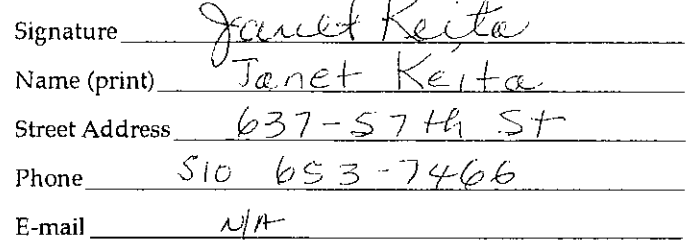 Signature Janet Keita
Name (print) Janet Keita
Street Address 637-57th St
Phone 510 653-7466
E-mail N/A